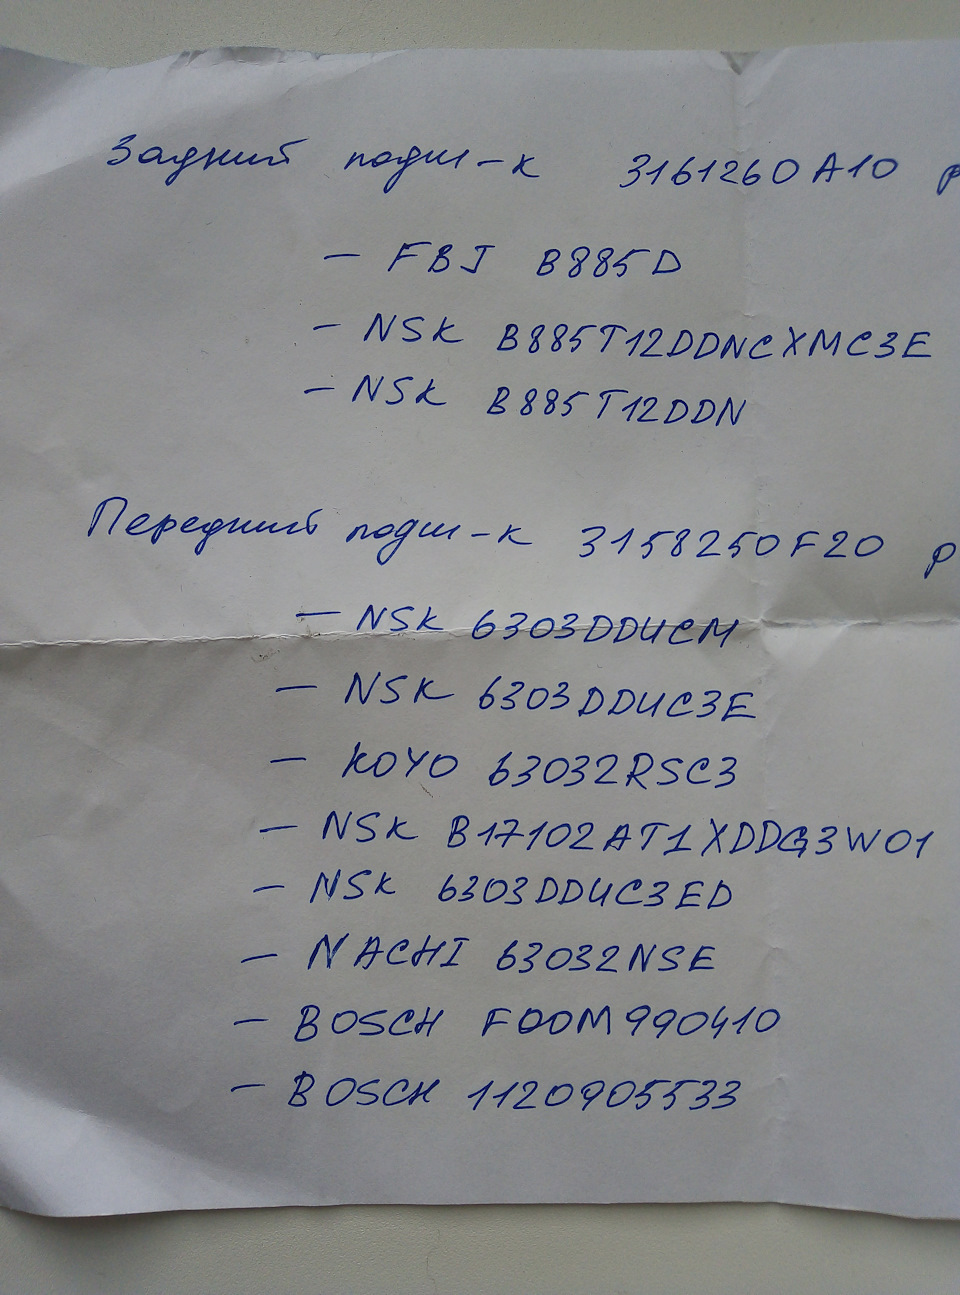 Задний подш-к 3161260A10 р
— FBJ B885D
— NSK B885T12DDNCXMC3E
— NSK B885T12DDN
Передний подш-к 3158250F20 р
— NSK 6303DDUCM
— NSK 6303DDUC3E
— KOYO 63032RSC3
— NSK B17102AT1XDDG3W01
— NSK 6303DDUC3ED
— NACHI 63032NSE
— BOSCH F00M990410
— BOSCH 1120905533